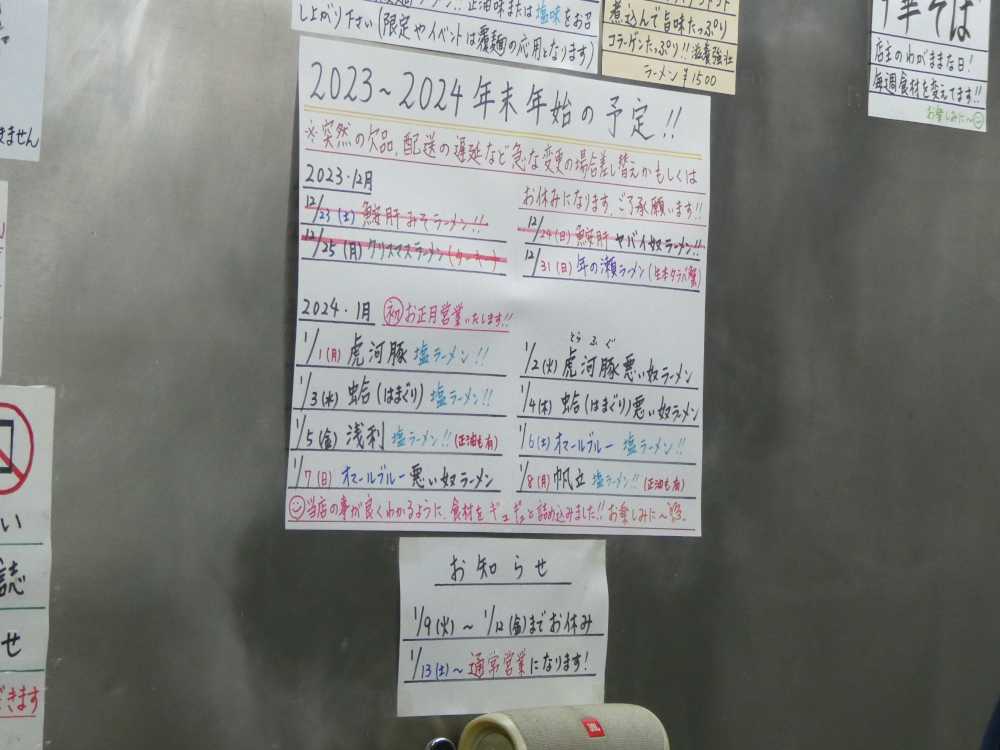 正油味または塩味をお召
し上がり下さい(限定やイベントは覆麺の応用となります)
煮込んで旨味たっぷり
コラーゲンたっぷり!!滋養強壮
ラーメン ¥1500
華そば
店主のわがままな日!
毎週食材を変えてます!!
お楽しみに〜
きません
2023〜2024年末年始の予定!!
※突然の欠品、配送の遅延など急な変更の場合差し替えかもしくは
お休みになります。ご了承願います!!
2023・12月
12/23(土) 鮟肝みそラーメン!!
12/24(日) 鮟肝ヤバイ奴ラーメン!!
12/25(月) クリスマスラーメン(ターキー)
12/31(日) 年の瀬ラーメン(生本タラバ蟹)
2024・1月 初 お正月営業いたします!!
1/1(月) 虎河豚 塩ラーメン!!
とらふぐ
1/2(火) 虎河豚悪い奴ラーメン
1/3(水) 蛤(はまぐり) 塩ラーメン!!
1/4(木) 蛤(はまぐり)悪い奴ラーメン
1/5(金) 浅利 塩ラーメン!!(正油も有)
1/6(土) オマールブルー 塩ラーメン!!
1/7(日) オマールブルー 悪い奴ラーメン
1/8(月) 帆立 塩ラーメン!!(正油も有)
当店の事が良くわかるように、食材をギュギュッと詰め込みました!!お楽しみに〜
お知らせ
1/9(火)〜1/12(金)までお休み
1/13(土)〜通常営業になります!
い
誌
せ
だきます
JBL